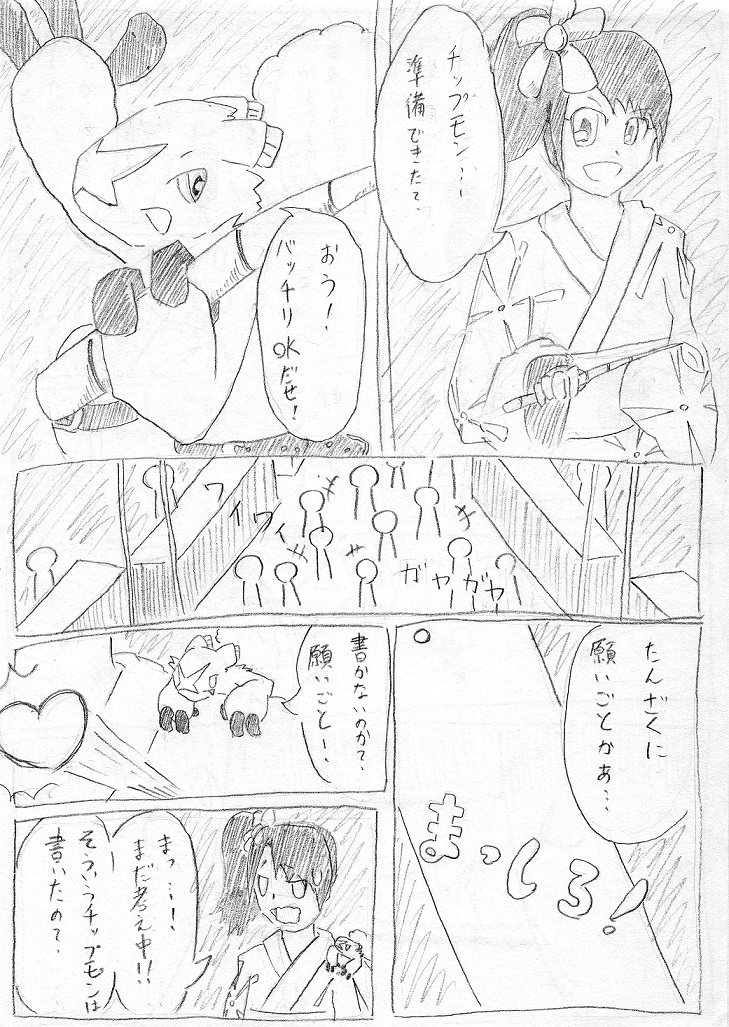 チップモン…!
準備できた?
おう!
バッチリ
OKだぜ!
ワイワイ
ガヤガヤ
たんざくに
願いごとかぁ…
まっしろ!
書かないのか?
願いごとー。
まっ…!!
まだ考え中!!
そういうチップモンは
書いたの?